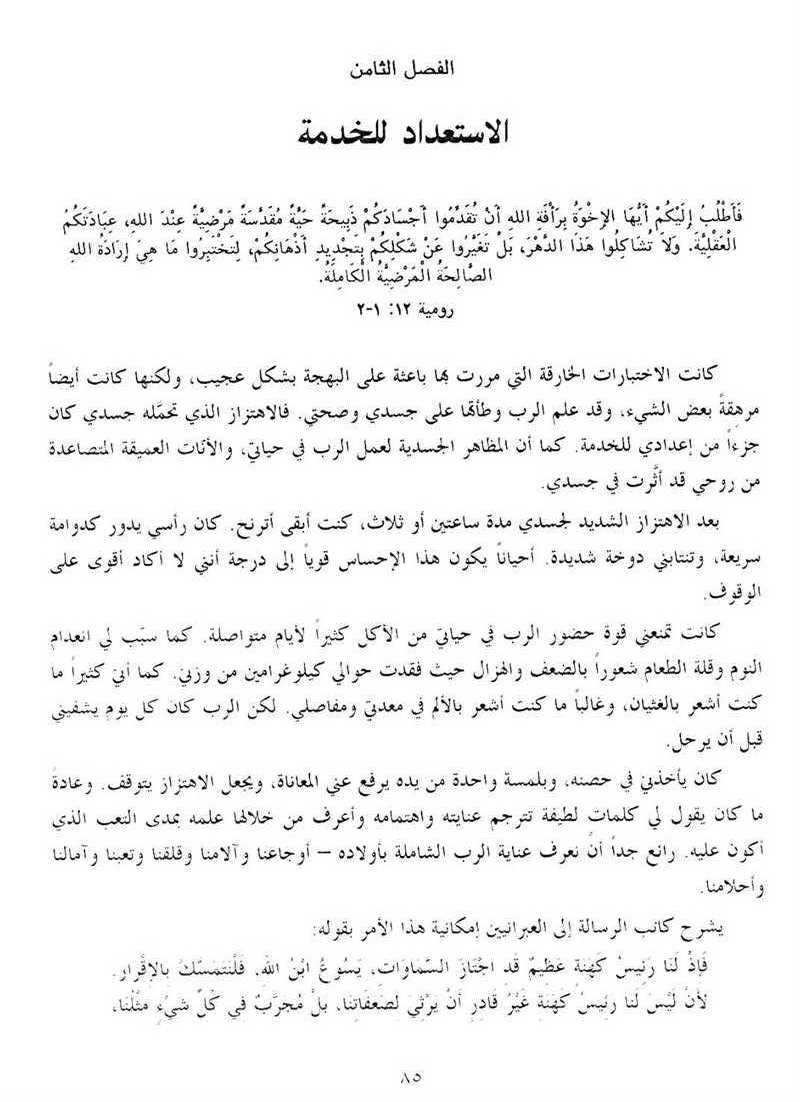 الفصل الثامن
الاستعداد للخدمة
فَأَطْلُبُ إِلَيْكُمْ أَيُّهَا الإِخْوَةُ بِرَأْفَةِ اللهِ أَنْ تُقَدِّمُوا أَجْسَادَكُمْ ذَبِيحَةً حَيَّةً مُقَدَّسَةً مَرْضِيَّةً عِنْدَ اللهِ، عِبَادَتَكُمُ
الْعَقْلِيَّةَ. وَلاَ تُشَاكِلُوا هَذَا الدَّهْرَ، بَلْ تَغَيَّرُوا عَنْ شَكْلِكُمْ بِتَجْدِيدِ أَذْهَانِكُمْ، لِتَخْتَبِرُوا مَا هِيَ إِرَادَةُ اللهِ
الصَّالِحَةُ الْمَرْضِيَّةُ الْكَامِلَةُ.
رومية ١٢: ١-٢
كانت الاختبارات الخارقة التي مررت بها باعثة على البهجة بشكل عجيب، ولكنها كانت أيضاً
مرهقةً بعض الشيء، وقد علم الرب وطأتها على جسدي وصحتي. فالاهتزاز الذي تحمَّله جسدي كان
جزءاً من إعدادي للخدمة. كما أن المظاهر الجسدية لعمل الرب في حياتي، والأنَّات العميقة المتصاعدة
من روحي قد أثَّرت في جسدي.
بعد الاهتزاز الشديد لجسدي مدة ساعتين أو ثلاث، كنت أبقى أترنح. كان رأسي يدور كدوامة
سريعة، وتنتابني دوخة شديدة. أحياناً يكون هذا الإحساس قوياً إلى درجة أنني لا أكاد أقوى على
الوقوف.
كانت تمنعني قوة حضور الرب في حياتي من الأكل كثيراً لأيام متواصلة. كما سبّب لي انعدام
النوم وقلة الطعام شعوراً بالضعف والهزال حيث فقدت حوالي كيلوغرامين من وزني. كما أني كثيراً ما
كنت أشعر بالغثيان، وغالباً ما كنت أشعر بالألم في معدتي ومفاصلي. لكن الرب كان كل يوم يشفيني
قبل أن يرحل.
كان يأخذني في حضنه، وبلمسة واحدة من يده يرفع عني المعاناة، ويجعل الاهتزاز يتوقف. وعادةً
ما كان يقول لي كلمات لطيفة تترجم عنايته واهتمامه وأعرف من خلالها علمه بمدى التعب الذي
أكون عليه. رائع جداً أن نعرف عناية الرب الشاملة بأولاده – أوجاعنا وآلامنا وقلقنا وتعبنا وآمالنا
وأحلامنا.
يشرح كاتب الرسالة إلى العبرانيين إمكانية هذا الأمر بقوله:
فَإِذْ لَنَا رَئِيسُ كَهَنَةٍ عَظِيمٌ قَدِ اجْتَازَ السَّمَاوَاتِ، يَسُوعُ ابْنُ اللهِ، فَلْنَتَمَسَّكْ بِالإِقْرَارِ.
لأَنْ لَيْسَ لَنَا رَئِيسُ كَهَنَةٍ غَيْرُ قَادِرٍ أَنْ يَرْثِيَ لِضَعَفَاتِنَا، بَلْ مُجَرَّبٌ فِي كُلِّ شَيْءٍ مِثْلُنَا،
٨٥